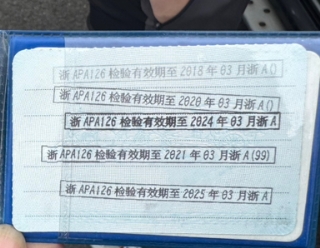 浙APA126检验有效期至2018年03月浙A()
浙APA126检验有效期至2020年03月浙A()
浙APA126检验有效期至2024年03月浙A
浙APA126检验有效期至2021年03月浙A(99)
浙APA126检验有效期至2025年03月浙A